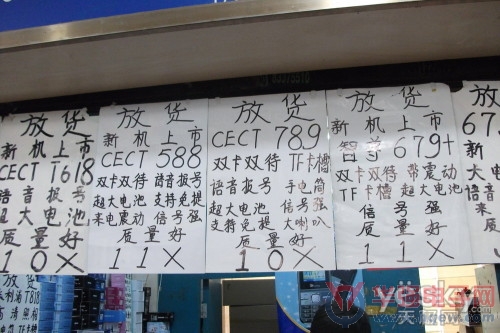 放货
新机上市
CECT T618
语音报号
超大电池
质量好
10X
放货
新机上市
CECT 588
双卡双待 语音报号
超大电池 支持免提
来电震动 信号强
质量好
11X
放货
CECT 789
双卡双待 TF卡槽
语音报号 手电筒
超大电池 信号强
支持免提 大喇叭
质量好
10X
放货
新机上市
679+
双卡双待 带震动
TF卡槽 超大电池
信号强
质量好
11X
放
67
放货
T818
高清照相